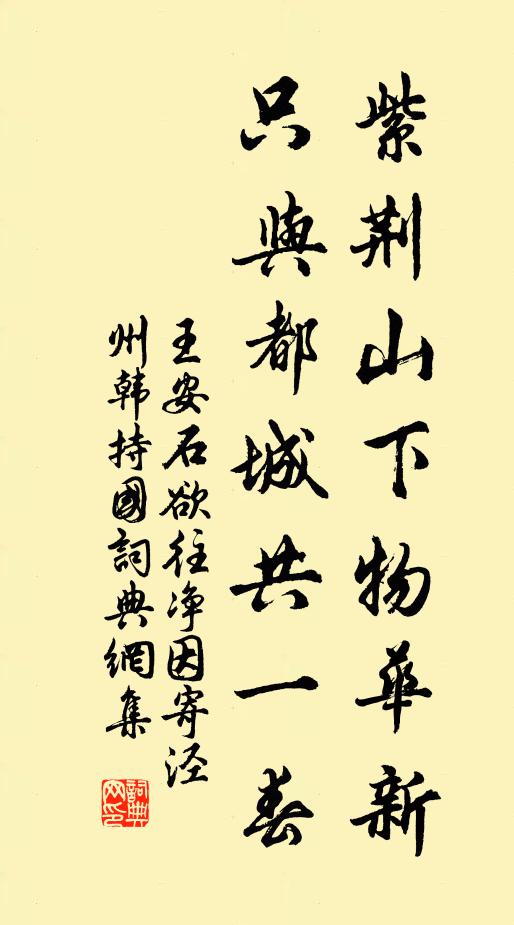 紫荆山下物華新
只與都城共一春
王安石欲往净因寄泾
州韩持國詞典網集
詞典
网印